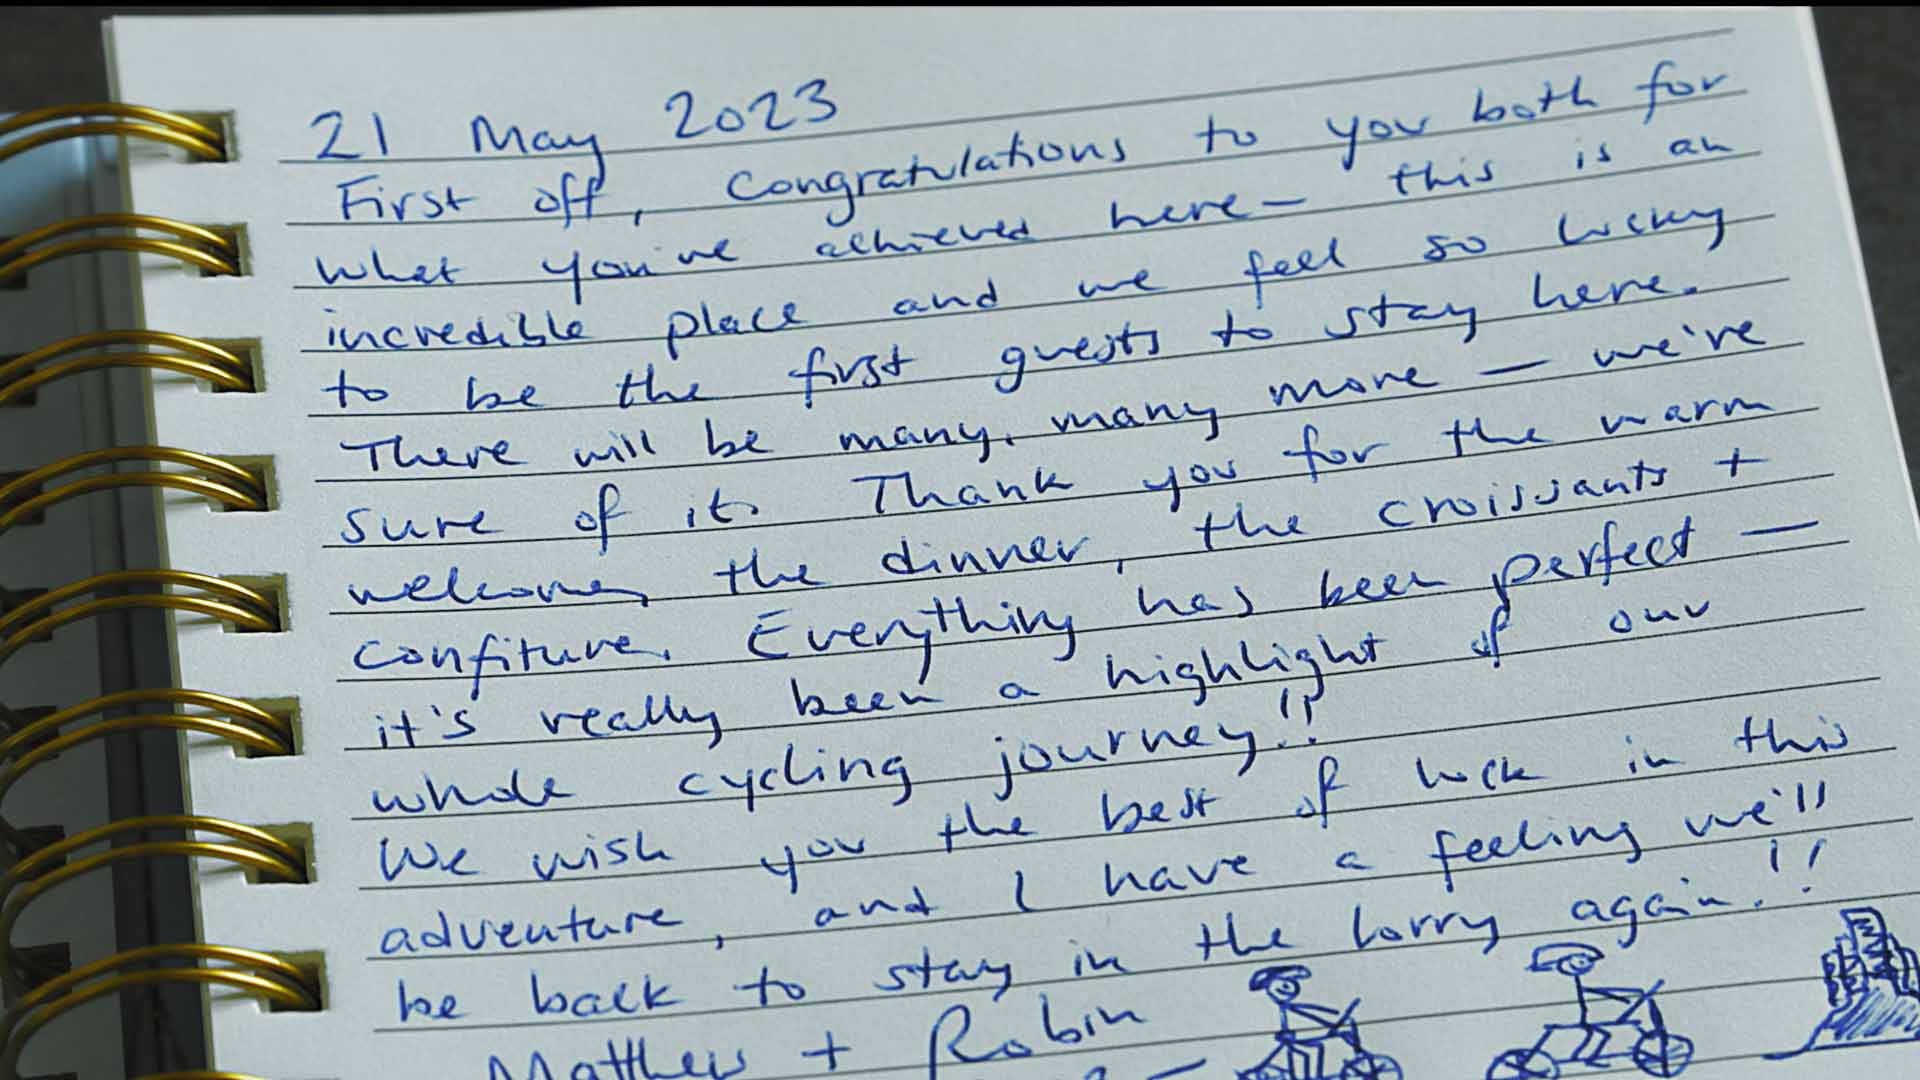 21 May 2023
First off, congratulations to you both for
what you've achieved here - this is an
incredible place and we feel so lucky
to be the first guests to stay here.
There will be many, many more - we're
sure of it. Thank you for the warm
welcome, the dinner, the croissants +
confiture. Everything has been perfect -
it's really been a highlight of our
whole cycling journey!!
We wish you the best of luck in this
adventure, and I have a feeling we'll
be back to stay in the lorry again!!
Matthew + Robin